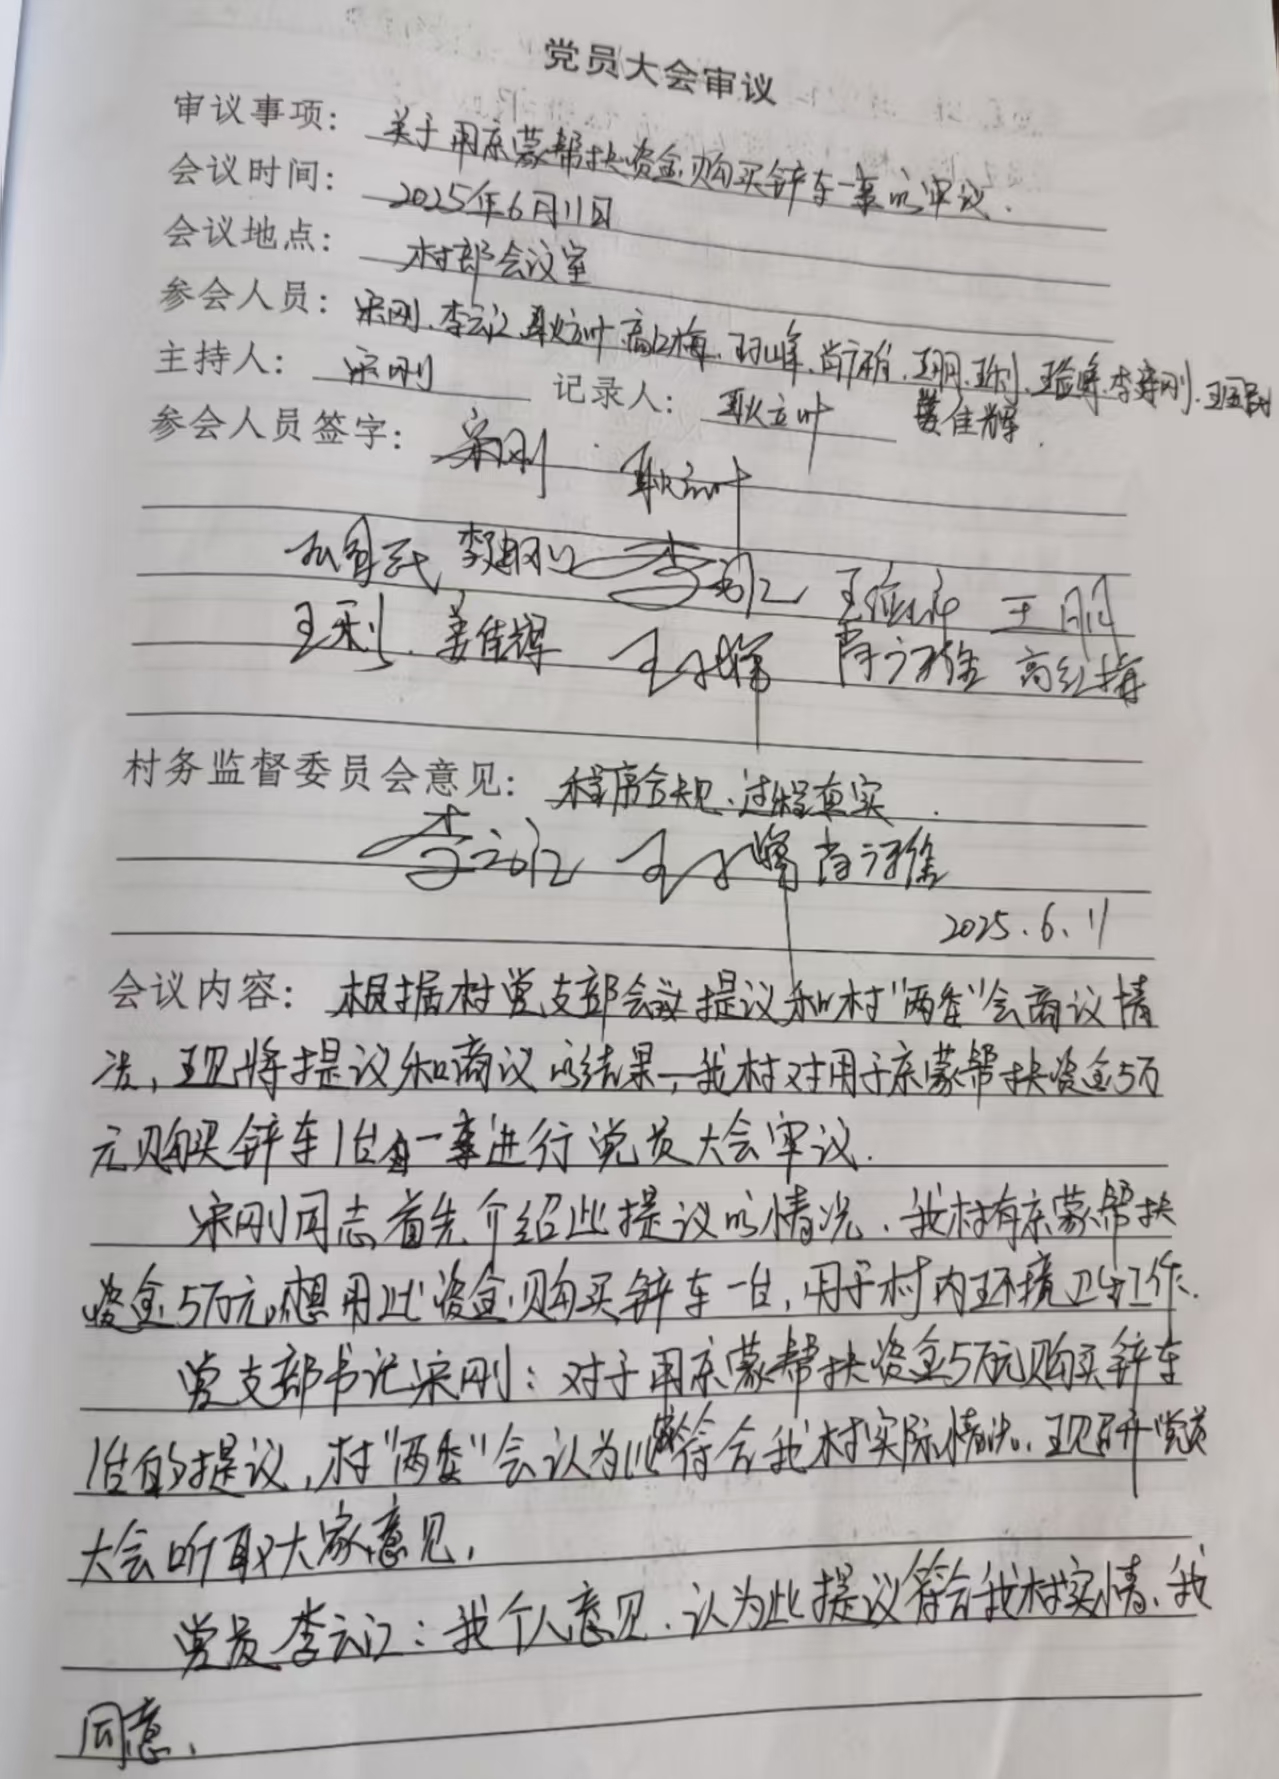 党员大会审议
审议事项：关于用京蒙帮扶资金购买铲车一事的审议.
会议时间：2025年6月11日
会议地点：村部会议室
参会人员：宋刚、李云江、耿立叶、高红梅、王山峰、肖广裕、王刚、王利、李建刚、
主持人：宋刚 记录人：耿立叶 姜佳辉.
参会人员签字：宋刚 耿立叶
李建刚 李云江 王刚
王利 姜佳辉 高红梅
村务监督委员会意见：程序合规、过程真实.
李云江
2025.6.11
会议内容：根据村党支部会议提议和村“两委”会商议情
况，现将提议和商议的结果，我村对用于京蒙帮扶资金5万
元购买铲车1台一事进行党员大会审议.
宋刚同志首先介绍此提议的情况.我村有京蒙帮扶
资金5万元,想用此资金购买铲车一台,用于村内环境卫生工作.
党支部书记宋刚：对于用京蒙帮扶资金5万元购买铲车
1台的提议,村“两委”会认为符合我村实际情况.现召开党员
大会听取大家意见,
党员李云江：我个人意见.认为此提议符合我村实情、我
同意.